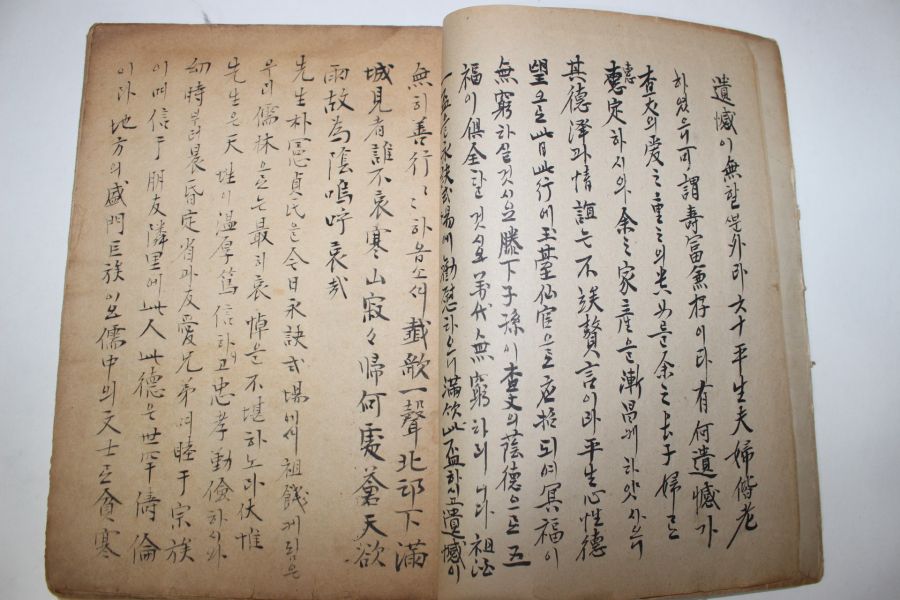 遺憾이無할뿐外라六十平生夫婦偕老
하얏으니可謂壽富兼存이라有何遺憾가
查丈의愛之重之의貴女를余之長子婦로
惠定하시와余之家產을漸昌케하얏사오니
其德澤과情誼는不俟贅言이라平生心性德
望으로此日此行에玉臺仙官으로应招되여冥福이
無窮하실것시요膝下子孫이查丈의蔭德으로五
福이俱全할것시요萬代無窮하리니다祖餞
一盃를永訣式場에勸慰하오니滿飮此盃하시고遺憾이
無히善行善行하옵소서輓歌一聲北邙下滿
城見者誰不哀寒山寂々歸何處蒼天欲
雨故為陰嗚呼哀哉
先生朴憲貞氏는今日永訣式場에서祖餞케됨은
우리儒林으로는最히哀悼를不堪하노라伏惟
先生은天性이溫厚篤信하고忠孝勤儉하시와
幼時부터晨昏定省과友愛兄弟며睦于宗族
이며信于朋友隣里에此人此德은世罕儔倫
이라地方의盛門巨族이요儒中의文士로貪寒